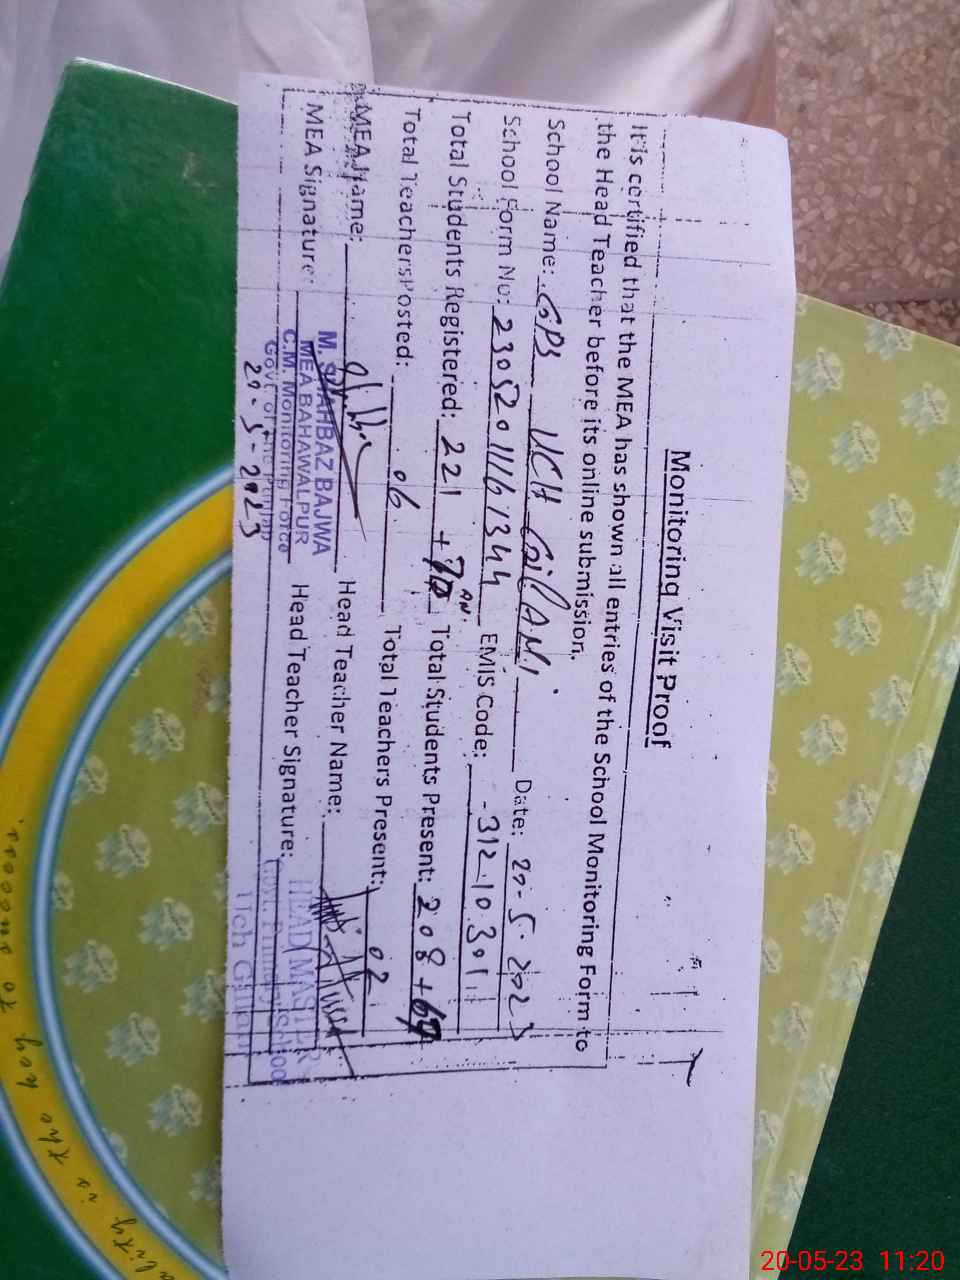 Monitoring Visit Proof
It is certified that the MEA has shown all entries of the School Monitoring Form to
the Head Teacher before its online submission.
School Name: GPS UCH GillANi Date: 20-5-2023
School Form No: 23052011161344 EMIS Code: -31210301
Total Students Registered: 221 + 70 Total Students Present: 208 +
Total Teachers Posted: 06 Total Teachers Present: 02
MEA Name: Head Teacher Name:
M. SHAHBAZ BAJWA
MEA Signature: Head Teacher Signature:
MEA BAHAWALPUR
C.M. Monitoring Force
Govt of the Punjab
20-5-2023
HEAD MASTER
Govt. Primary School
Uch Gillani
ality is the key to success.
20-05-23 11:20